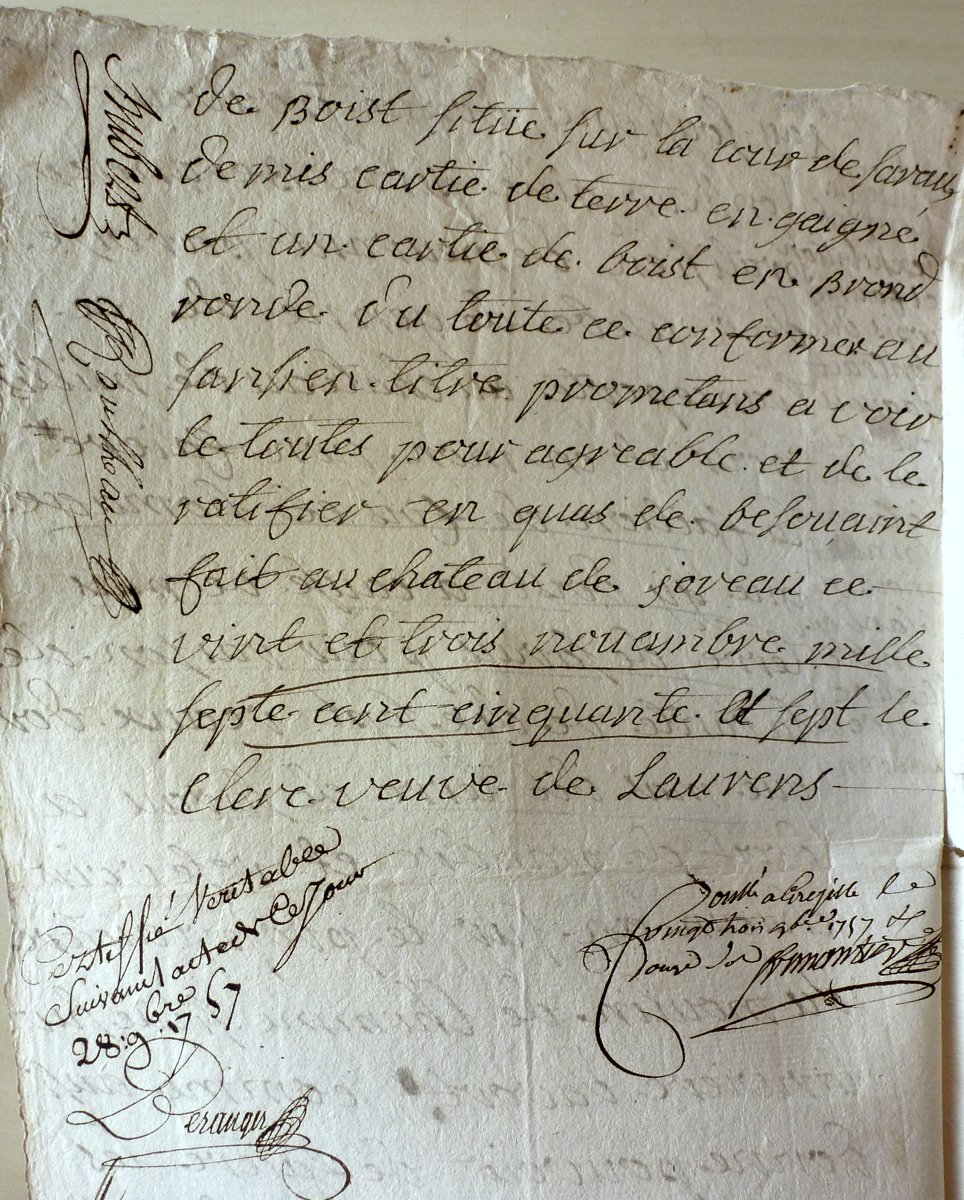 de Boist sitüe sur la cour de saran
demis cartie de terre en gaigné
et un cartie de boist en Brond
ronde du toute ce conformer au
sansien titre prometans a voir
le toutes pour agreable et de le
ratifier en quas de besouaint
fait au chateau de joreau ce
vint et trois nouambre mille
septe cent cinquante et sept le
Clerc veuve de Laurens
Certiffié Veritable
Suivant acte de Ce Jour
28: 9bre 1757
Deranger
le
vingt trois 9bre 1757